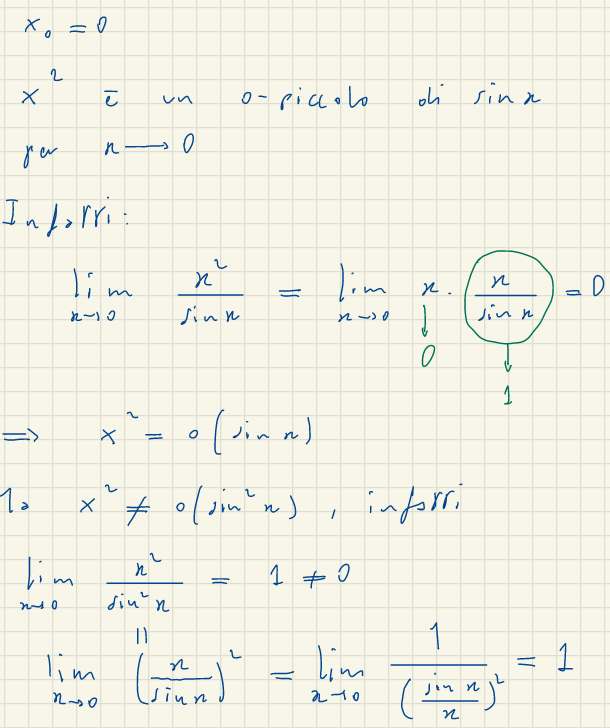 x₀ = 0
x² è un o-piccolo di sin x
per x → 0
Infatti:
lim x→0 x²/sin x = lim x→0 x · (x/sin x) = 0
↓ 0 ↓ 1
⇒ x² = o(sin x)
Ma x² ≠ o(sin² x), infatti
lim x→0 x²/sin² x = 1 ≠ 0
||
lim x→0 (x/sin x)² = lim x→0 1/(sin x/x)² = 1